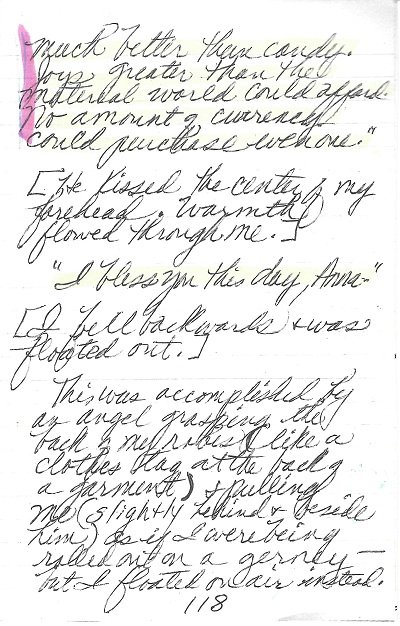 much better than candy.
Joys greater than the
material world could afford.
No amount of currency
could purchase even one."
[He kissed the center of my
forehead. Warmth
flowed through me.]
"I bless you this day, Anna."
[I fell backwards & was
floated out.]
This was accomplished by
an angel grasping the
back of my robes (like a
clothes tag at the back of
a garment) & pulling
me (slightly behind & beside
him) as if I were being
rolled out on a gerney—
but I floated on air instead.
118